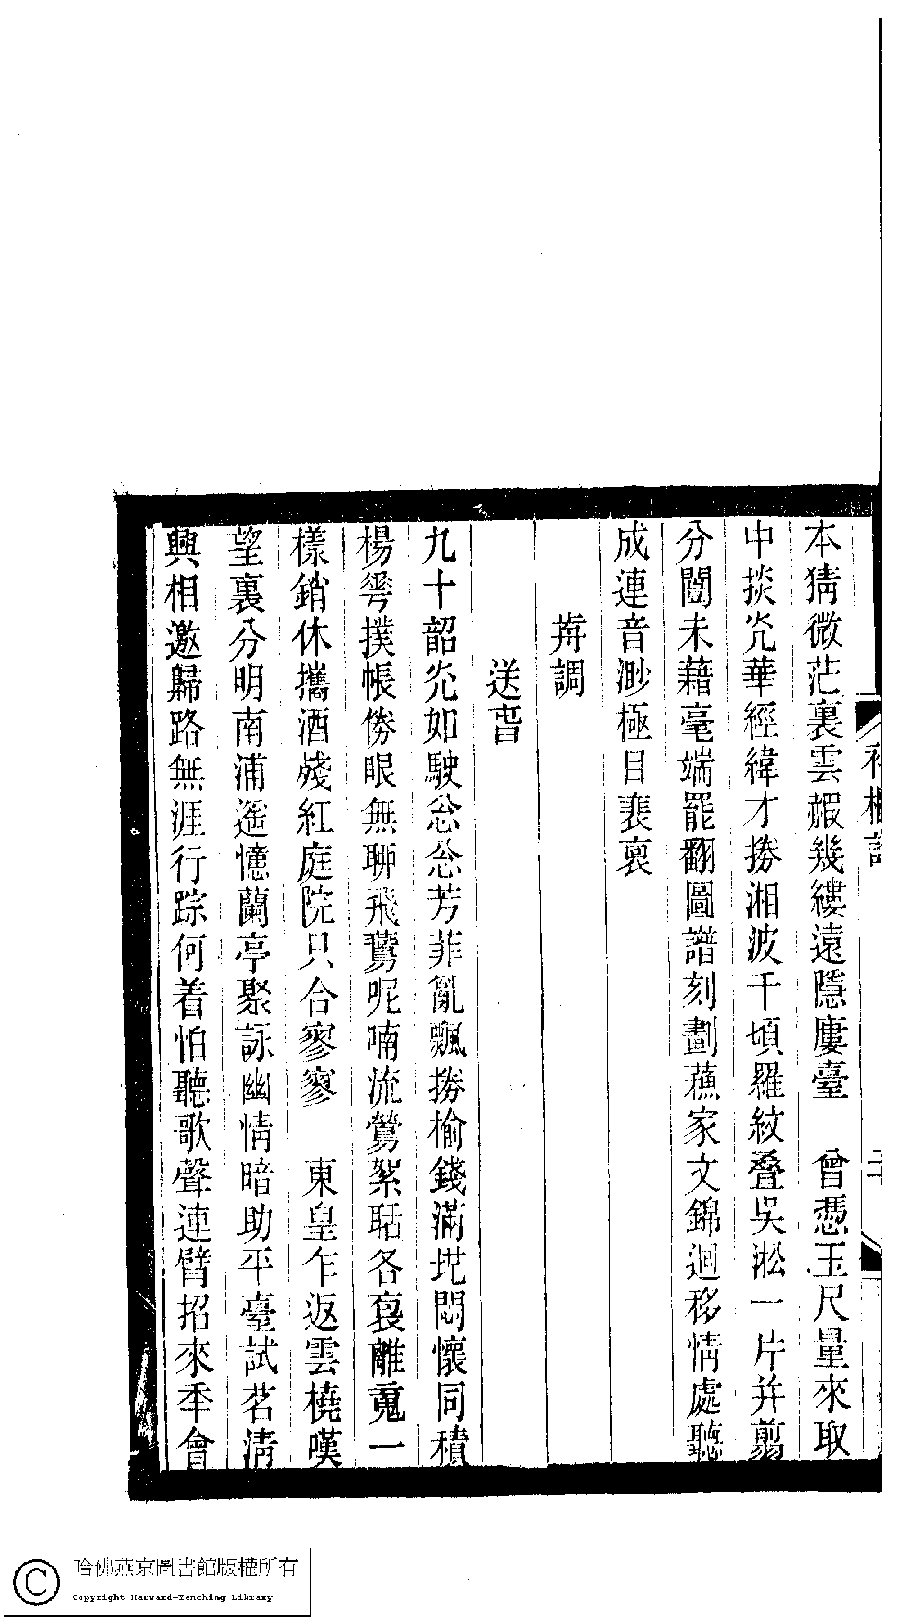 本猜微茫裏雲嘏幾縷遠隱廔臺　曾憑玉尺量來取
中掞灮華經緯才搒湘波千頃羅紋疊吳淞一片并翦
分闓未藉毫端罷翻圖譜刻劃蘓家文錦迴移情處聽
成連音渺極目裵裏
搿調
送旾
九十韶灮如駛忩忩芳菲亂飄搒榆錢滿地悶懷同積
楊雩撲帳傍眼無聊飛䴏呢喃流鶯絮聒各裒離䰟一
樣銷休攜酒殘紅庭院只合寥寥　東皇乍返雲橈嘆
望裏分明南浦遥憶蘭亭聚詠幽情暗助平臺試茗淸
興相邀歸路無涯行踪何着怕聽歌聲連臂招來秊會
二
哈佛燕京圖書館版權所有
Copyright Harvard-Yenching Library